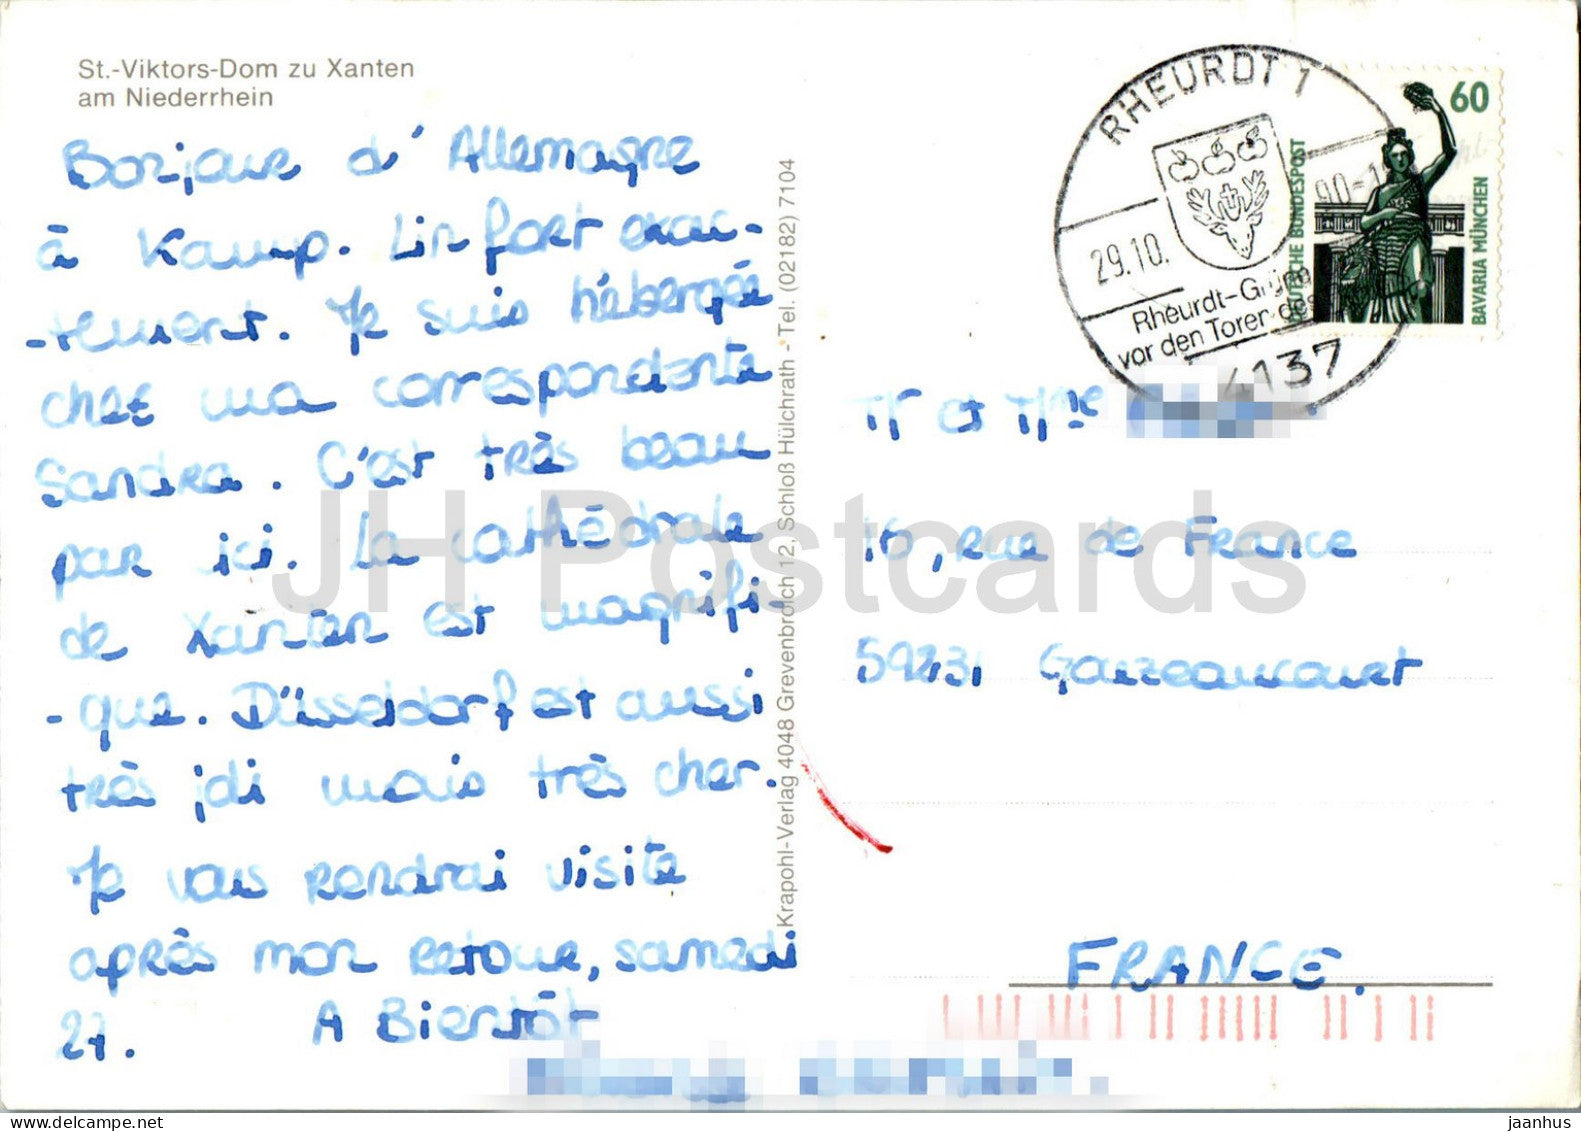 St.-Viktors-Dom zu Xanten
am Niederrhein
Bonjour d'Allemagne
à Kamp. Linfort exac-
-tement. Je suis hébergée
chez ma correspondante
Sandra. C'est très beau
par ici. La cathédrale
de Xanten est magnifi-
-que. Düsseldorf est aussi
très joli mais très cher.
Je vous rendrai visite
après mon retour, samedi
27. A Bientôt
Krapohl-Verlag 4048 Grevenbroich 12, Schloß Hülchrath - Tel. (02182) 7104
RHEURDT 1
29.10.
Rheurdt-Grüne
vor den Toren des
4137
60
DEUTSCHE BUNDESPOST
BAVARIA MÜNCHEN
Mr et Mme
16, rue de France
59231 Gouzeaucourt
FRANCE.
JH Postcards
jaanhus